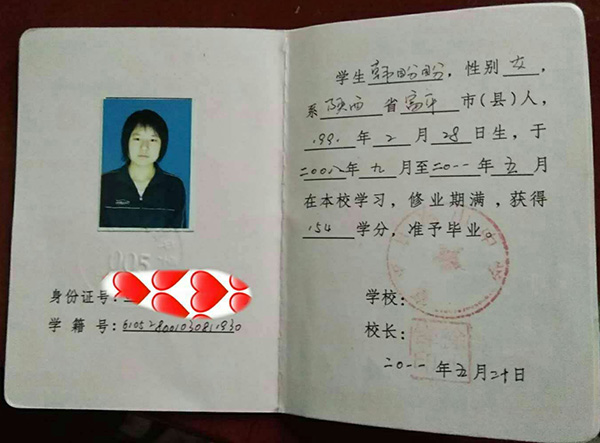 身份证号:
学 籍 号:6105280010308 11930
学生韩盼盼,性别女,
系陕西省富平市(县)人,
199 年2月28日生,于
二00八年九月至二0一一年五月
在本校学习,修业期满,获得
154学分,准予毕业。
学校:
校长:
二0一一年五月二十日